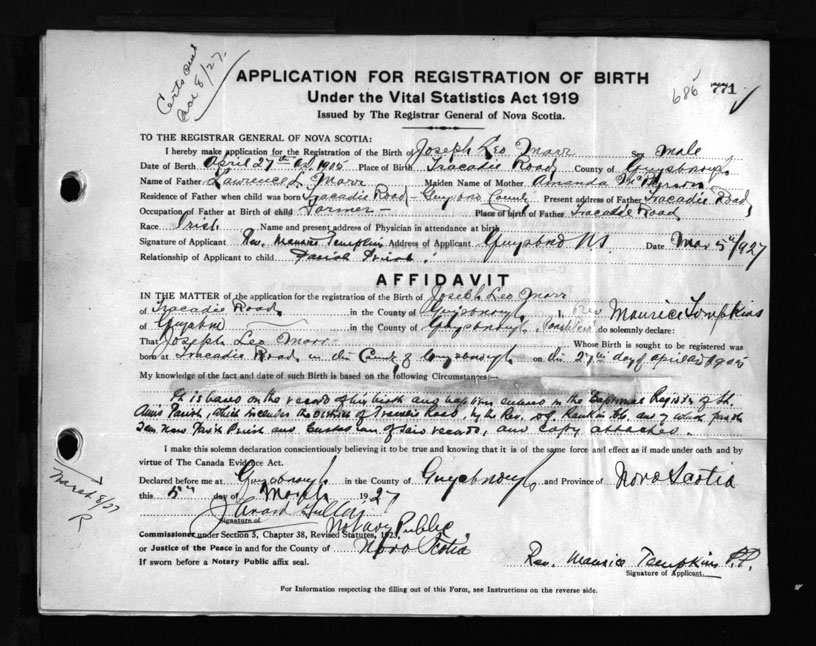 Certs out
Mar 8/27.
686 771
APPLICATION FOR REGISTRATION OF BIRTH
Under the Vital Statistics Act 1919
Issued by The Registrar General of Nova Scotia.
TO THE REGISTRAR GENERAL OF NOVA SCOTIA:
I hereby make application for the Registration of the Birth of Joseph Leo Marr Sex Male
Date of Birth April 27th 1905 Place of Birth Tracadie Road County of Guysborough
Name of Father Lawrence L. Marr Maiden Name of Mother Amanda
Residence of Father when child was born Tracadie Road - Guysboro County Present address of Father Tracadie Road
Occupation of Father at Birth of child Farmer - Place of birth of Father Tracadie Road
Race Irish Name and present address of Physician in attendance at birth
Signature of Applicant Rev. Maurice Tompkins Address of Applicant Guysboro N.S. Date Mar 5th/1927
Relationship of Applicant to child Parish Priest.
AFFIDAVIT
IN THE MATTER of the application for the registration of the Birth of Joseph Leo Marr
of Tracadie Road in the County of Guysborough I, Rev Maurice Tompkins
of Guysboro in the County of Guysborough do solemnly declare:
That Joseph Leo Marr Whose Birth is sought to be registered was
born at Tracadie Road in the County of Guysborough on the 27th day of April AD 1905
My knowledge of the fact and date of such Birth is based on the following Circumstances:—
It is based on the record of his birth and baptism entered in the Baptismal Register of St.
Ann's Parish, which includes the District of Tracadie Road by the Rev. of which parish
I am now Parish Priest and Custodian of said records, and copy attached.
I make this solemn declaration conscientiously believing it to be true and knowing that it is of the same force and effect as if made under oath and by
virtue of The Canada Evidence Act.
Declared before me at Guysborough in the County of Guysborough and Province of Nova Scotia
this 5th day of March 1927
March 8/27
R
Signature of
Notary Public
Commissioner under Section 5, Chapter 38, Revised Statutes, 1923,
or Justice of the Peace in and for the County of Nova Scotia
If sworn before a Notary Public affix seal.
Rev. Maurice Tompkins P.P.
Signature of Applicant.
For Information respecting the filling out of this Form, see Instructions on the reverse side.